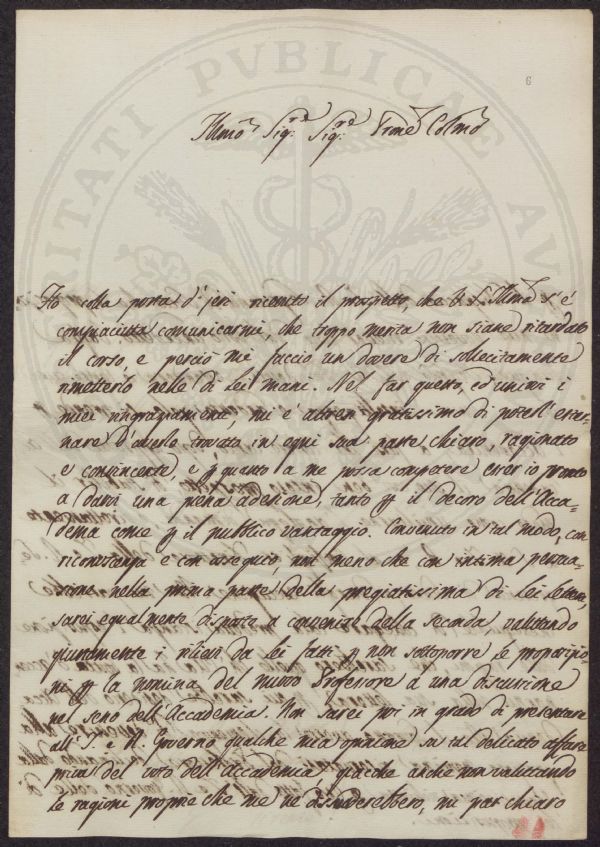 6
Illmo Sig.re Sig.re Prone Colmo
Ho colla posta d'jeri ricevuto il prospetto, che V. S. Illma s'è
compiaciuta comunicarmi, che troppo merita non siane ritardato
il corso, e perciò mi faccio un dovere di sollecitamente
rimetterlo nelle di lei mani. Nel far questo, ed unirvi i
miei ringraziamenti, mi è altresì gratissimo di poterl' ester-
nare d'averlo trovato in ogni sua parte chiaro, ragionato
e convincente, e p quanto a me possa competere esser io pronto
a darvi una piena adesione, tanto p il decoro dell'Acca-
demia come p il pubblico vantaggio. Convenuto in tal modo, con
riconoscenza e con ossequio, non meno che con intima persua-
sione nella prima parte della pregiatissima di lei lettera,
sarei egualmente disposto a convenire della seconda, valutando
giustamente i rilievi da lei fatti p non sottoporre le proposizio-
ni p la nomina del nuovo Professore a una discussione
nel seno dell'Accademia. Non sarei poi in grado di presentare
all' I. e R. Governo qualche mia opinione su tal delicato affare
priva del voto dell'Accademia, giacchè anche non valutando
le ragioni proprie che me ne dissuaderebbero, mi par chiaro